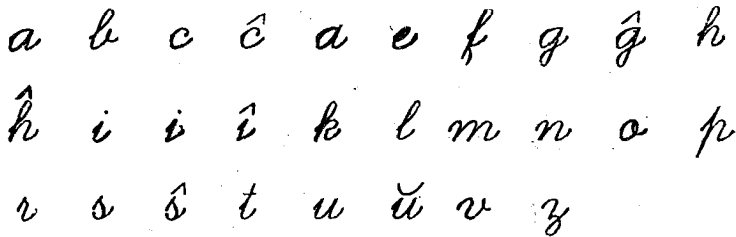 a b c ĉ a e f g ĝ h
ĥ i i î k l m n o p
r s ŝ t u ŭ v z